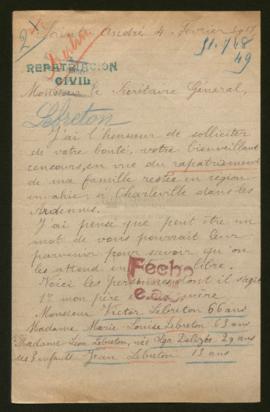 André 4. Fevrier
31.1/48
49
REPATRIACION
CIVIL
Monsieur le Secrétaire Général,
Lebreton
J'ai l'honneur de solliciter
de votre bonté, votre bienveillant
concours, en vue du rapatriement
de ma famille restée en région
envahie, à Charleville dans les
Ardennes.
J'ai pensé que peut être un
mot de vous pourrait leur
parvenir pour savoir qu'on
les attend en libre.
Fecho
Voici les personnes dont il s'agit
1º mon père
Monsieur Victor Lebreton 66 ans
Madame Marie-Louise Lebreton 63 ans
Madame Léon Lebreton, née 29 ans
Jean Lebreton 13 ans